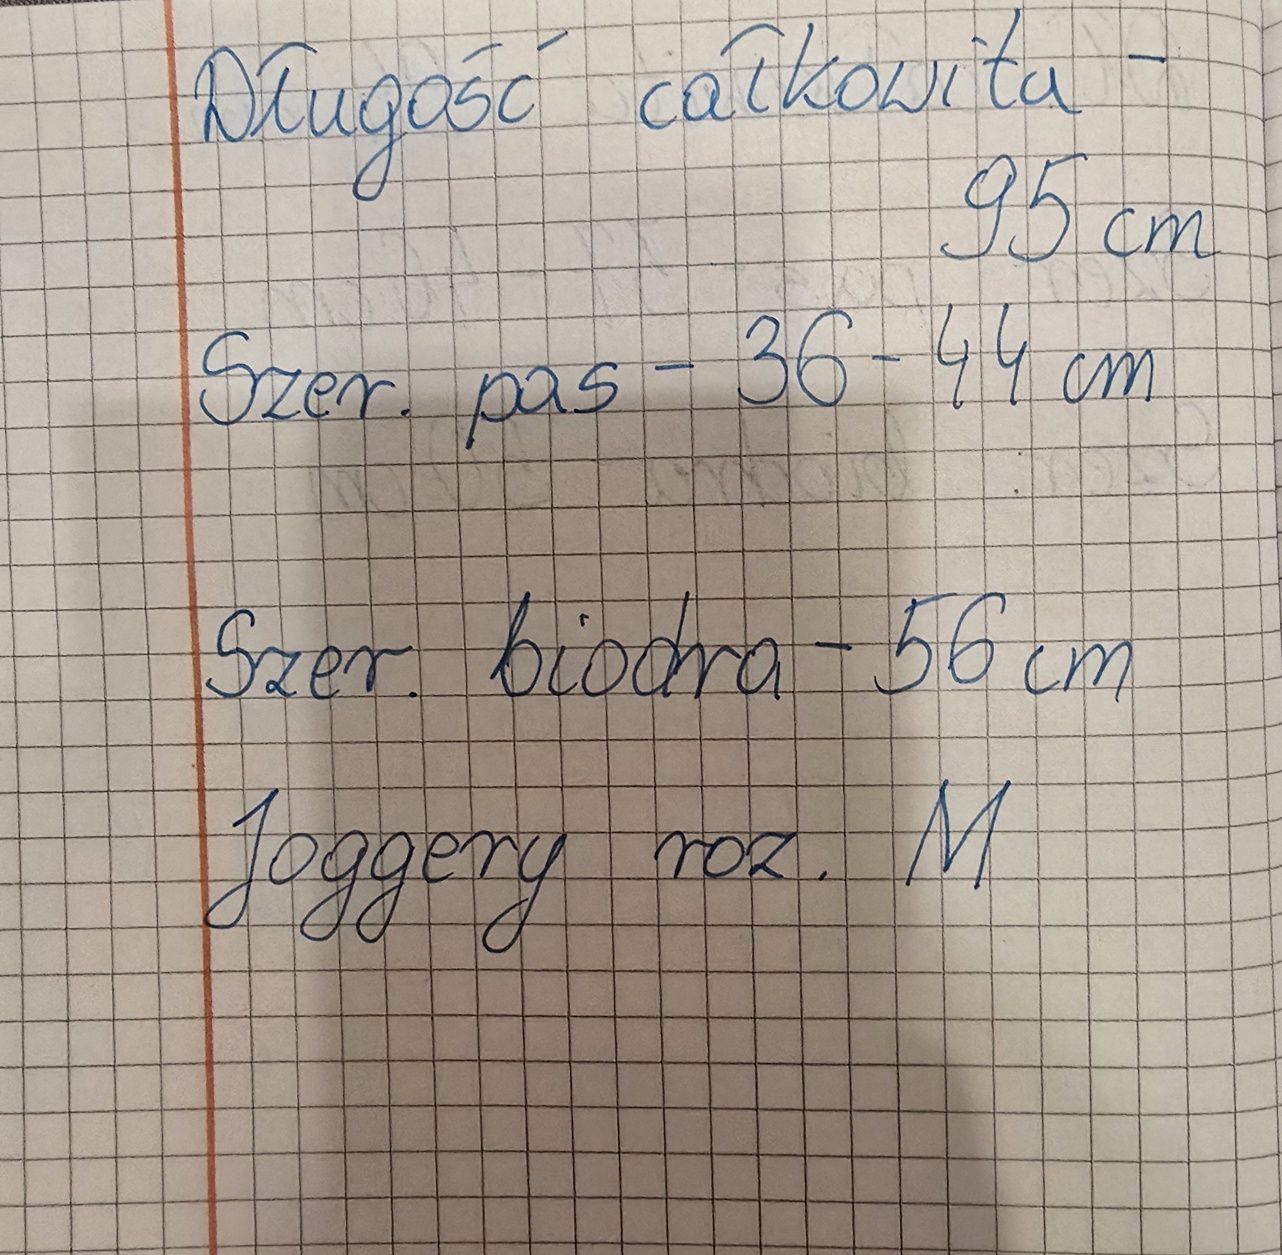 Długość całkowita -
95 cm
Szer. pas - 36 - 44 cm
Szer. biodra - 56 cm
Joggery roz. M